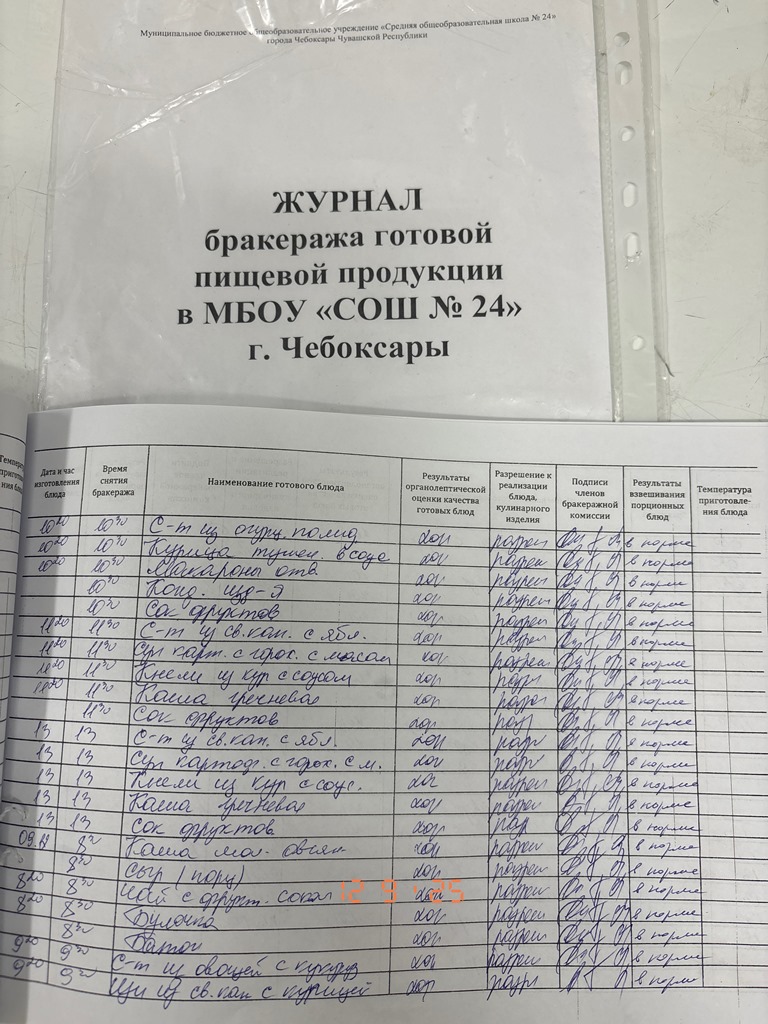 Муниципальное бюджетное общеобразовательное учреждение «Средняя общеобразовательная школа № 24»
города Чебоксары Чувашской Республики
ЖУРНАЛ
бракеража готовой
пищевой продукции
в МБОУ «СОШ № 24»
г. Чебоксары
Дата и час изготовления блюда Время снятия бракеража Наименование готового блюда Результаты органолептической оценки качества готовых блюд Разрешение к реализации блюда, кулинарного изделия Подписи членов бракеражной комиссии Результаты взвешивания порционных блюд Температура приготовле-ния блюда
10 20 10 30 С-т из огур. помид хор разреш в норме
10 20 10 30 Курица тушен. в соусе хор разреш в норме
10 20 10 30 Макароны отв хор разреш в норме
10 30 Конд. изд-я хор разреш в норме
10 30 Сок фруктов хор разреш в норме
11 20 11 30 С-т из св.кап. с ябл. хор разреш в норме
11 20 11 30 Суп карт. с горох. с мясом хор разреш в норме
11 20 11 30 Кнели из кур с соусом хор разр в норме
11 20 11 30 Каша гречневая хор разреш в норме
11 30 Сок фруктов хор разр в норме
13 13 С-т из св.кап. с ябл. хор разр в норме
13 13 Суп картоф. с горох. с м. хор разр в норме
13 13 Кнели из кур с соус. хор разреш в норме
13 13 Каша гречневая хор разреш в норме
13 13 Сок фруктов хор раз в норме
8 30 Каша мол. овсян хор разреш в норме
8 30 Сыр (порц) хор разреш в норме
8 20 8 30 Чай с фрукт. соком хор разреш в норме
8 20 8 30 Булочка хор разреш в норме
8 30 Батон хор разреш в норме
9 20 9 30 С-т из овощей с кукуруз хор разреш в норме
9 20 9 30 Щи из св.кап с курицей хор разр в норме
12 9 '25